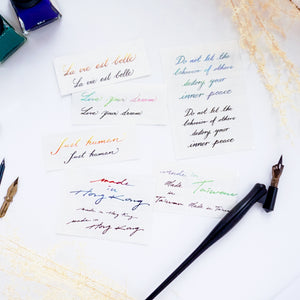 La vie est belle
La vie est belle
Love your dream
Love your dream
Just human
Just human
made
in
Hong Kong
made in Hong Kong
made in
Hong Kong
Do not let the
behavior of others
destroy your
inner peace
Do not let the
behavior of others
destroy your
inner peace
made in
Taiwan
Made in
Taiwan Made in Taiwan